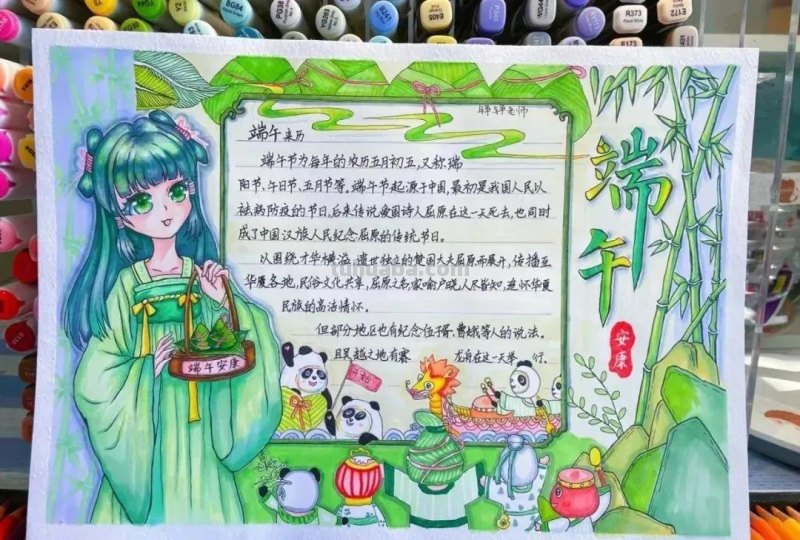 端午来历
端午节为每年的农历五月初五,又称瑞
阳节、午日节、五月节等。端午节起源于中国,最初是我国人民以
祛病防疫的节日,后来传说爱国诗人屈原在这一天死去,也同时
成了中国汉族人民纪念屈原的传统节日。
以围绕才华横溢、遗世独立的楚国大夫屈原而展开,传播至
华夏各地,民俗文化共享,屈原之名家喻户晓人尽皆知,追怀华夏
民族的高洁情怀。
但部分地区也有纪念伍子胥、曹娥等人的说法。
且吴越之地有 龙舟在这一天举 行。
端午
安康
端午安康
tuhuaba.com
PG38
BG84
Y2
B241
E405
R373
E173
E172